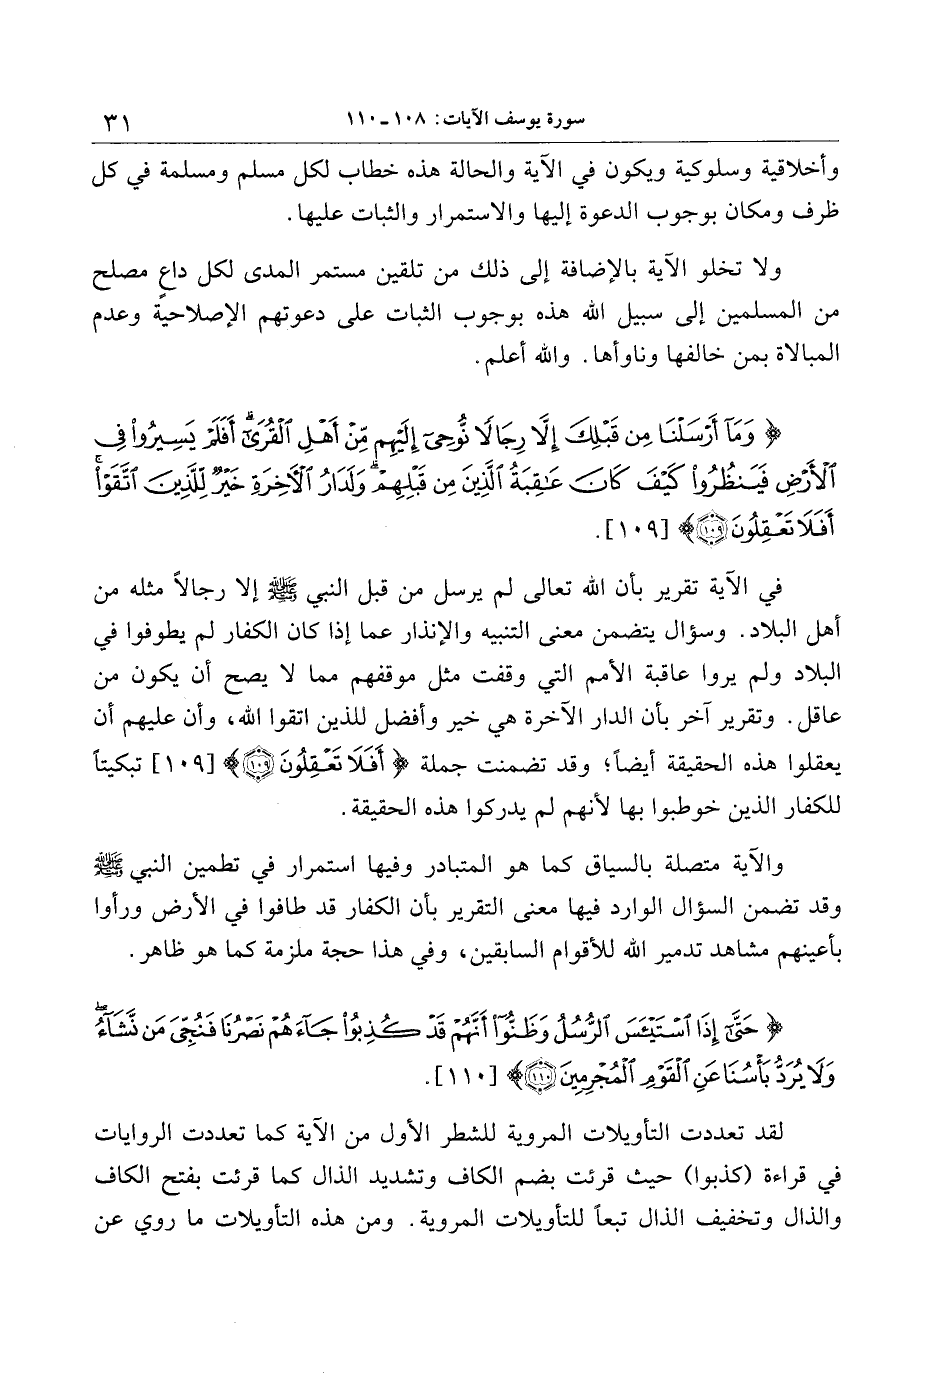 سورة يوسف الآيات: ١٠٨ـ١١٠ ٣١
وأخلاقية وسلوكية ويكون في الآية والحالة هذه خطاب لكل مسلم ومسلمة في كل
ظرف ومكان بوجوب الدعوة إليها والاستمرار والثبات عليها.
ولا تخلو الآية بالإضافة إلى ذلك من تلقين مستمر المدى لكل داعٍ مصلح
من المسلمين إلى سبيل الله هذه بوجوب الثبات على دعوتهم الإصلاحية وعدم
المبالاة بمن خالفها وناوأها. والله أعلم.
﴿ وَمَآ أَرۡسَلۡنَا مِن قَبۡلِكَ إِلَّا رِجَالٗا نُّوحِيٓ إِلَيۡهِم مِّنۡ أَهۡلِ ٱلۡقُرَىٰٓۗ أَفَلَمۡ يَسِيرُواْ فِي
ٱلۡأَرۡضِ فَيَنظُرُواْ كَيۡفَ كَانَ عَٰقِبَةُ ٱلَّذِينَ مِن قَبۡلِهِمۡۗ وَلَدَارُ ٱلۡأٓخِرَةِ خَيۡرٞ لِّلَّذِينَ ٱتَّقَوۡاْۚ
أَفَلَا تَعۡقِلُونَ ١٠٩﴾ [١٠٩].
في الآية تقرير بأن الله تعالى لم يرسل من قبل النبي ﷺ إلا رجالاً مثله من
أهل البلاد. وسؤال يتضمن معنى التنبيه والإنذار عما إذا كان الكفار لم يطوفوا في
البلاد ولم يروا عاقبة الأمم التي وقفت مثل موقفهم مما لا يصح أن يكون من
عاقل. وتقرير آخر بأن الدار الآخرة هي خير وأفضل للذين اتقوا الله، وأن عليهم أن
يعقلوا هذه الحقيقة أيضاً؛ وقد تضمنت جملة ﴿ أَفَلَا تَعۡقِلُونَ ١٠٩﴾ [١٠٩] تبكيتاً
للكفار الذين خوطبوا بها لأنهم لم يدركوا هذه الحقيقة.
والآية متصلة بالسياق كما هو المتبادر وفيها استمرار في تطمين النبي ﷺ
وقد تضمن السؤال الوارد فيها معنى التقرير بأن الكفار قد طافوا في الأرض ورأوا
بأعينهم مشاهد تدمير الله للأقوام السابقين، وفي هذا حجة ملزمة كما هو ظاهر.
﴿ حَتَّىٰٓ إِذَا ٱسۡتَيۡـَٔسَ ٱلرُّسُلُ وَظَنُّوٓاْ أَنَّهُمۡ قَدۡ كُذِبُواْ جَآءَهُمۡ نَصۡرُنَا فَنُجِّيَ مَن نَّشَآءُۖ
وَلَا يُرَدُّ بَأۡسُنَا عَنِ ٱلۡقَوۡمِ ٱلۡمُجۡرِمِينَ ١١٠﴾ [١١٠].
لقد تعددت التأويلات المروية للشطر الأول من الآية كما تعددت الروايات
في قراءة (كذبوا) حيث قرئت بضم الكاف وتشديد الذال كما قرئت بفتح الكاف
والذال وتخفيف الذال تبعاً للتأويلات المروية. ومن هذه التأويلات ما روي عن